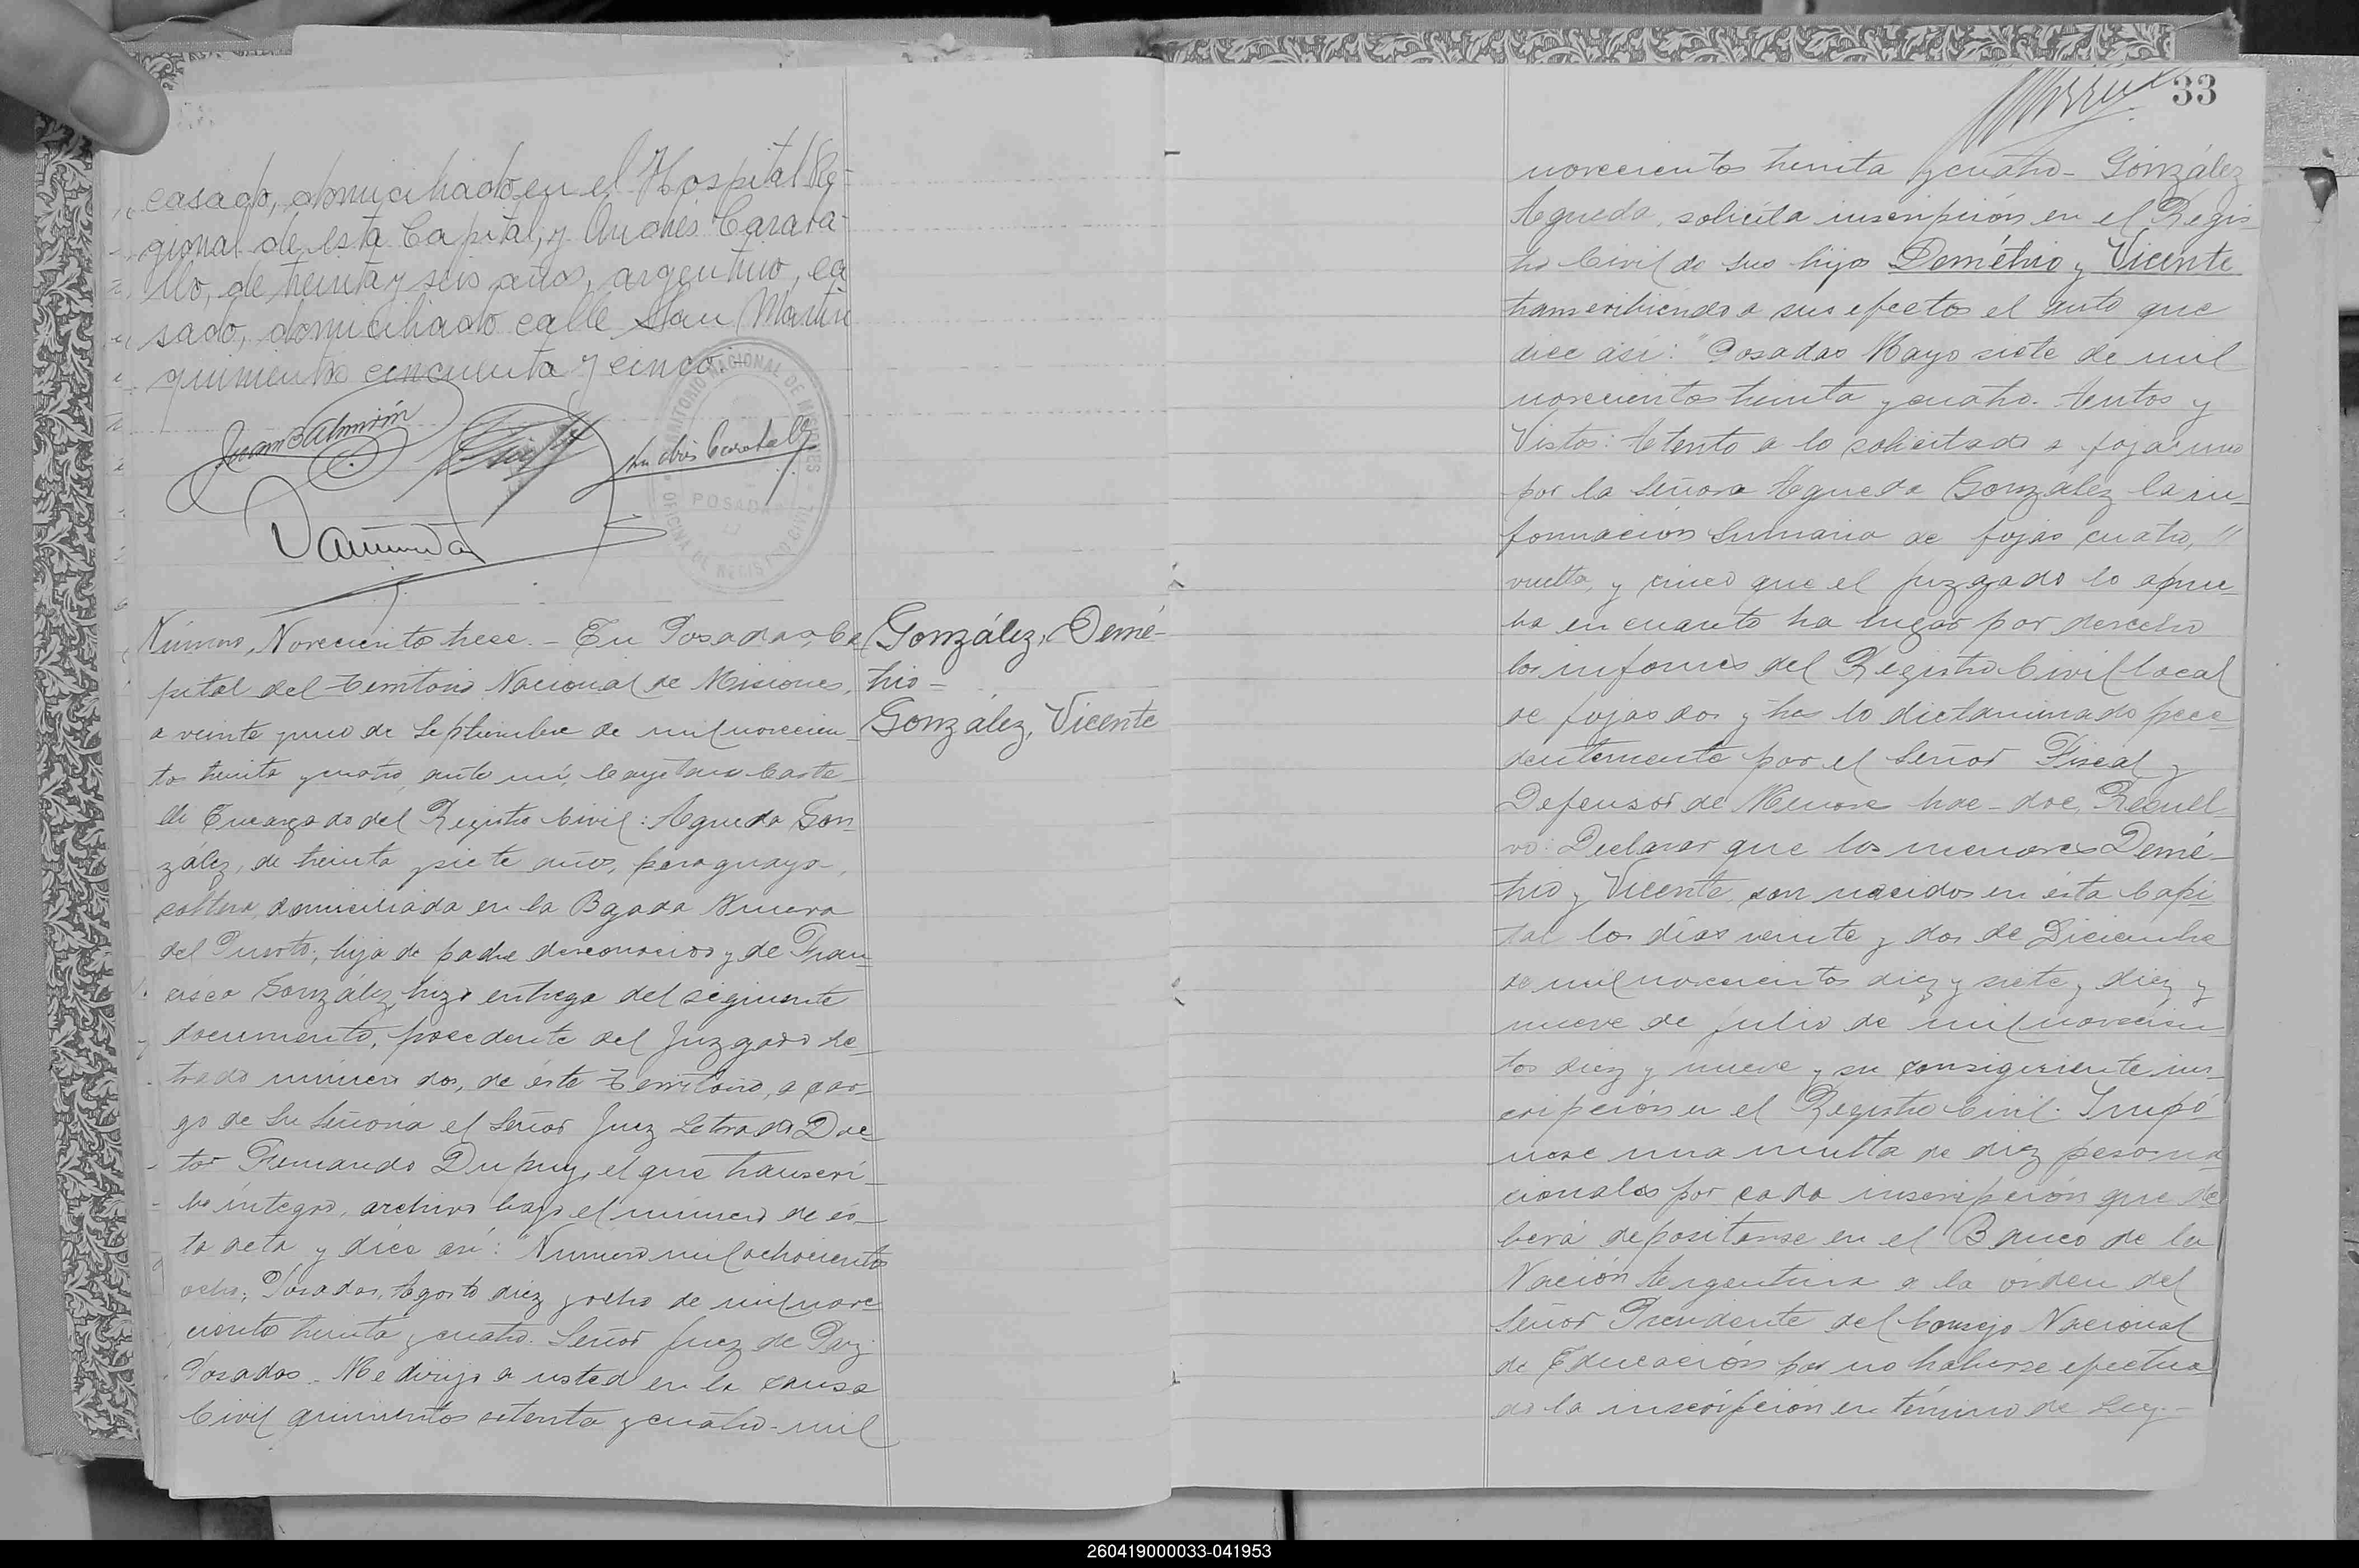 casado, domiciliado en el Hospital Re-
gional de esta Capital, y Andrés Carava-
llo, de treinta y seis años, argentino, ca
sado, domiciliado calle San Martín
quinientos cincuenta y cinco.-
Juan B Almirón
TERRITORIO NACIONAL DE MISIONES
POSADAS
OFICINA DE REGISTRO CIVIL
Número, Novecientos trece.- En Posadas, Ca
pital del Territorio Nacional de Misiones,
a veinte y uno de Septiembre de mil novecien
tos treinta y cuatro, ante mí, Cayetano Caste
lli Encargado del Registro Civil: Agueda Gon
zález, de treinta y siete años, paraguaya,
soltera, domiciliada en la Bajada Nueva
del Puerto; hija de padre desconocido y de Fran
cisca González, hizo entrega del siguiente
documento, procedente del Juzgado Le
trado número dos, de éste Territorio, a car-
go de Su Señoria el Señor Juez Letrado Doc
tor Fernando Dupuy, el que transcri-
bo íntegro, archivo bajo el número de és-
ta acta y dice así: "Número mil ochocientos
ocho; Posadas, Agosto diez y ocho de mil nove
cientos treinta y cuatro. Señor Juez de Paz.
Posadas. Me dirijo a usted en la causa
Civil quinientos setenta y cuatro- mil
González, Demé-
trio=
González, Vicente
33
novecientos treinta y cuatro- González
Agueda, solicita inscripción en el Regis
tro Civil de sus hijos Demétrio y Vicente
transcribiendo a sus efectos el auto que
dice así: "Posadas Mayo siete de mil
novecientos treinta y cuatro. Autos y
Vistos: Atento a lo solicitado a fojas uno
por la Señora Agueda González la in-
formación Sumaria de fojas cuatro, "
vuelta, y cinco que el Juzgado lo aprue-
ba en cuanto ha lugar por derecho
los informes del Registro Civil local
de fojas dos y tres lo dictaminado prece
dentemente por el Señor Fiscal y
Defensor de Menores Resuel-
vo: Declarar que los menores Demé-
trio y Vicente, son nacidos en ésta Capi
tal los días veinte y dos de Diciembre
de mil novecientos diez y siete y diez y
nueve de Julio de mil novecien
tos diez y nueve y su consiguiente ins-
cripción en el Registro Civil. Impó
nese una multa de diez pesos na
cionales por cada inscripción que de
berá depositarse en el Banco de la
Nación Argentina a la órden del
Señor Presidente del Consejo Nacional
de Educación por no haberse efectua
do la inscripción en término de Ley.-
260419000033-041953